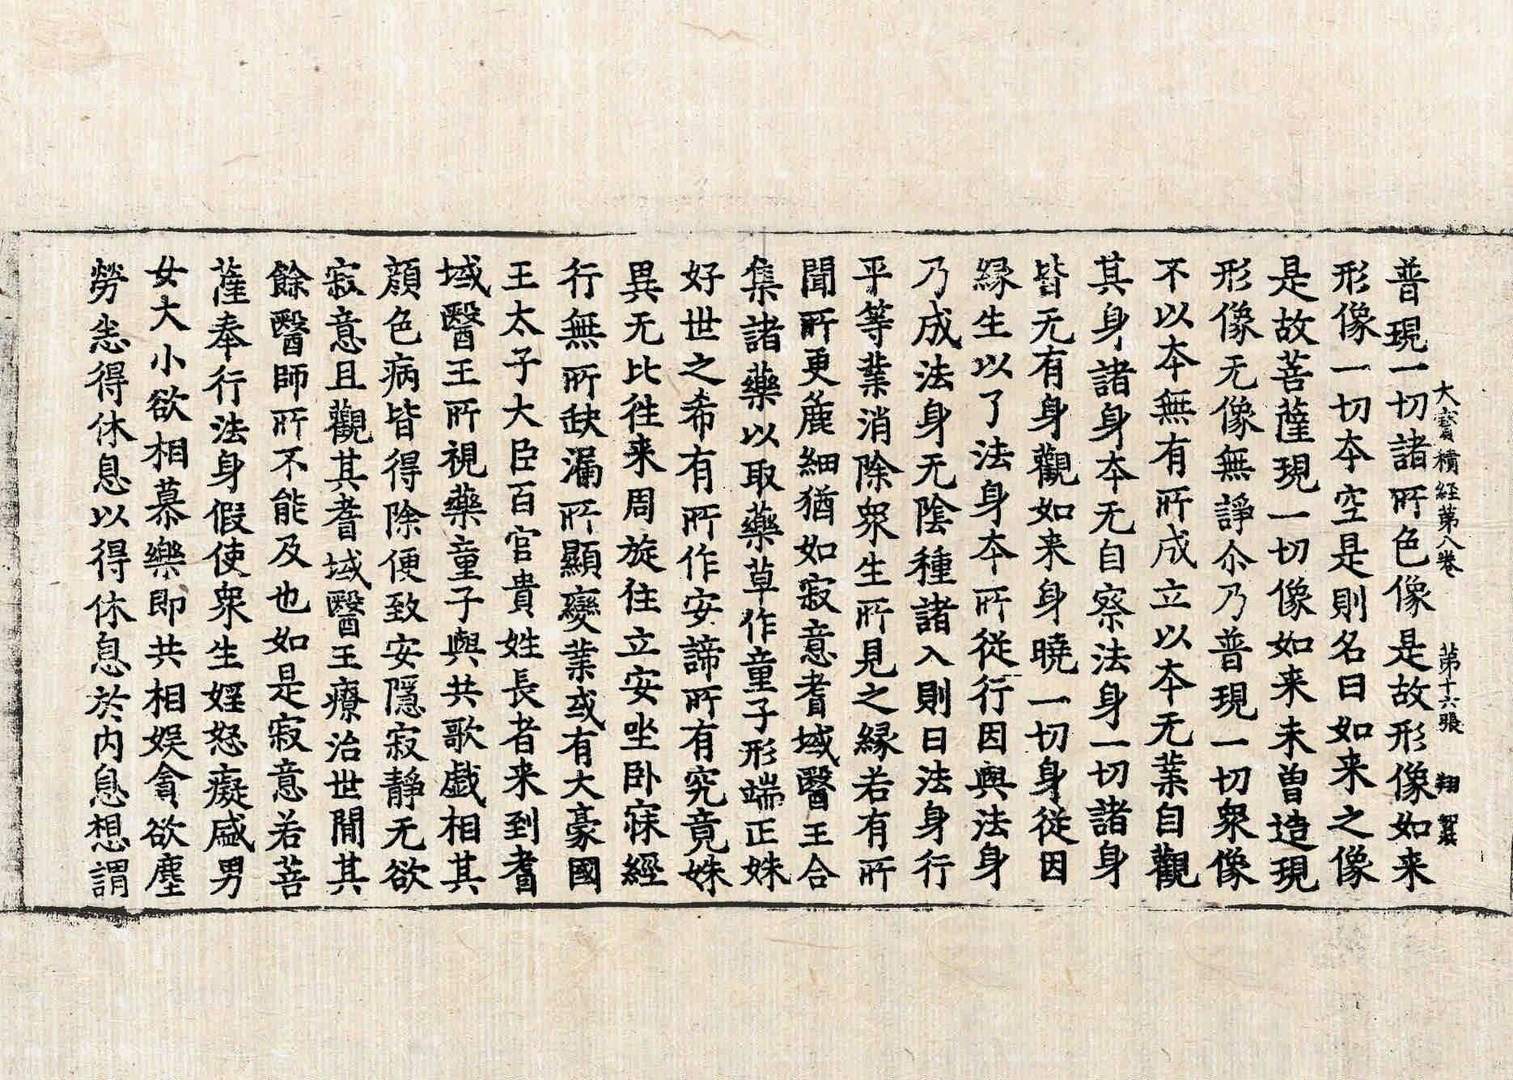 大寳積経苐八卷 苐十六張 翔 翆
普現一切諸所色像是故形像如来
形像一切夲空是則名曰如来之像
是故菩薩現一切像如来未曽造現
形像无像無諍尒乃普現一切衆像
不以夲無有所成立以夲无業自觀
其身諸身夲无自察法身一切諸身
皆无有身觀如来身曉一切身從因
縁生以了法身夲所從行因與法身
乃成法身无陰種諸入則曰法身行
平等業消除衆生所見之縁若有所
聞所更麁細猶如寂意耆域醫王合
集諸藥以取藥草作童子形端正姝
好世之希有所作安諦所有究竟姝
異无比往来周旋住立安坐卧寐經
行無所缺漏所顯變業或有大豪國
王太子大臣百官貴姓長者来到耆
域醫王所視藥童子與共歌戯相其
顔色病皆得除便致安隱寂靜无欲
寂意且觀其耆域醫王療治世間其
餘醫師所不能及也如是寂意若菩
薩奉行法身假使衆生婬怒癡盛男
女大小欲相慕樂即共相娱貪欲塵
勞悉得休息以得休息於内息想謂